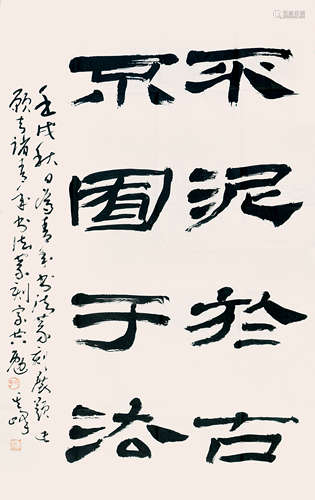 不泥於古
不囿于法
壬戌秋日為青年书法篆刻展題
願与諸青年书法篆刻家共勉
其峰